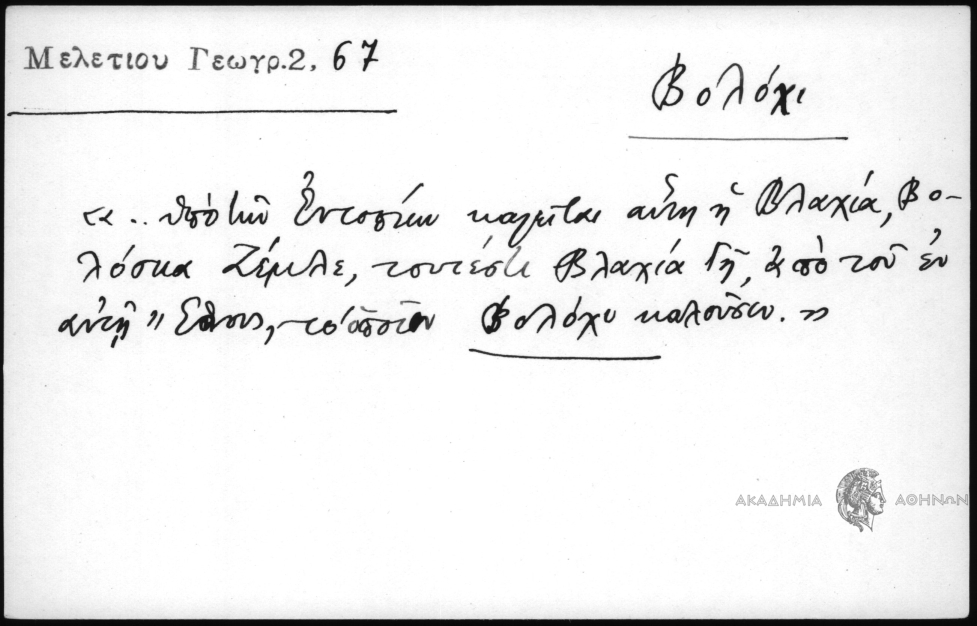 Μελετιου Γεωγρ.2, 67
Βολόχι
«.. ὑπὸ τῶν Ἐντοπίων καλεῖται αὕτη ἡ Βλαχία, Βο-
λόσκα Ζέμλε, τουτέστι Βλαχία Γῆ, ἀπὸ τοῦ ἐν
αὐτῇ Ἔθνους, τὸ ὁποῖον Βολόχι καλοῦσιν.»
ΑΚΑΔΗΜΙΑ ΑΘΗΝΩΝ